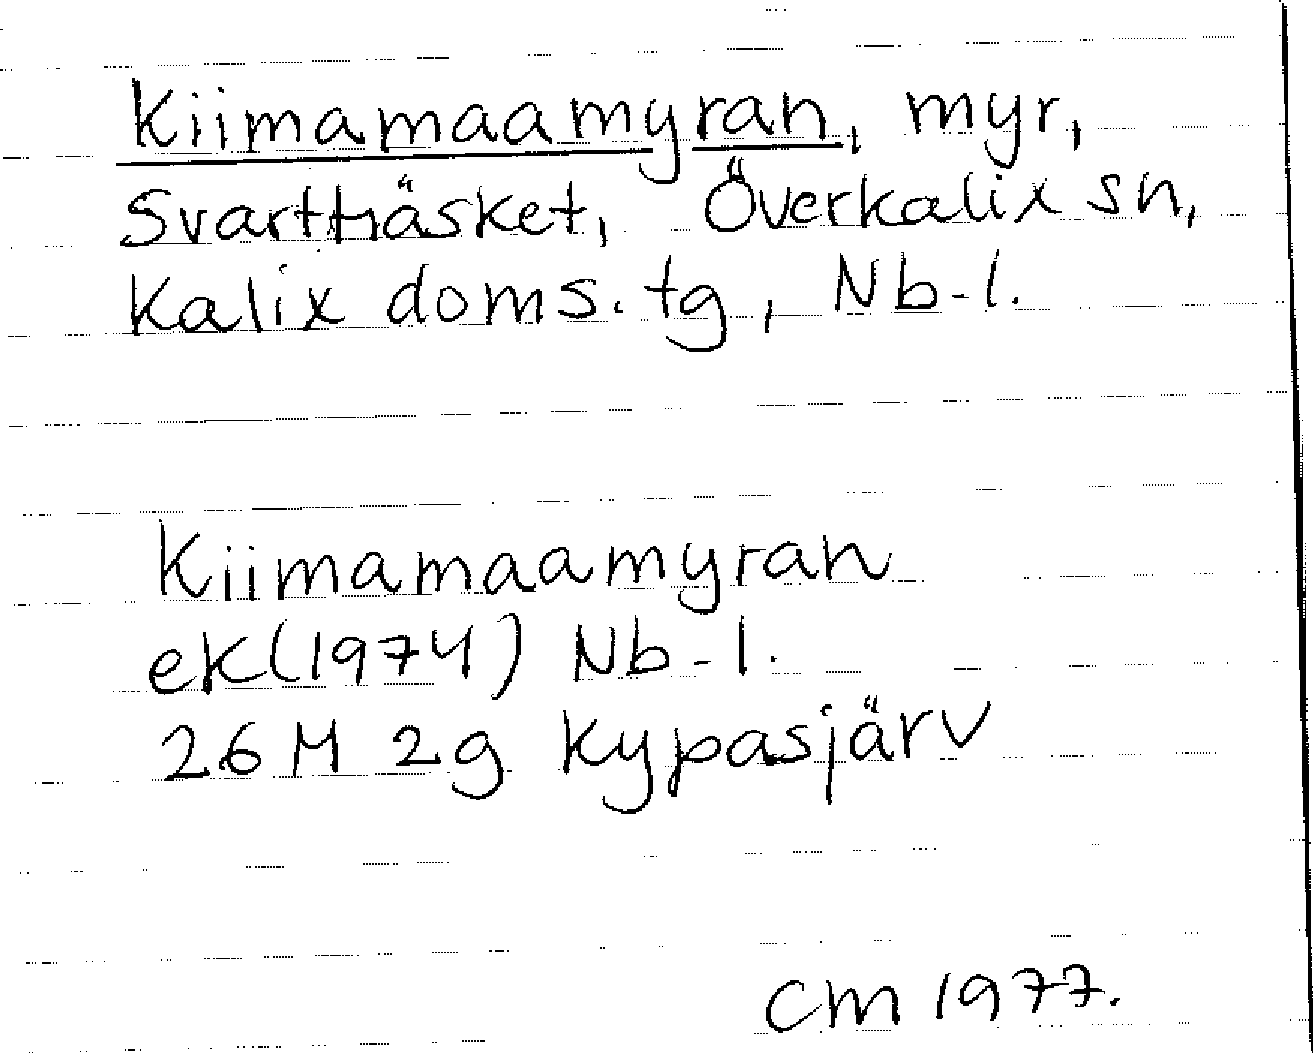 Kiimamaamyran, myr,
Svartträsket, Överkalix sn,
Kalix doms. tg, Nb-l.
Kiimamaamyran
ek (1974) Nb-l.
26 M 2g Kypasjärv
CM 1977.